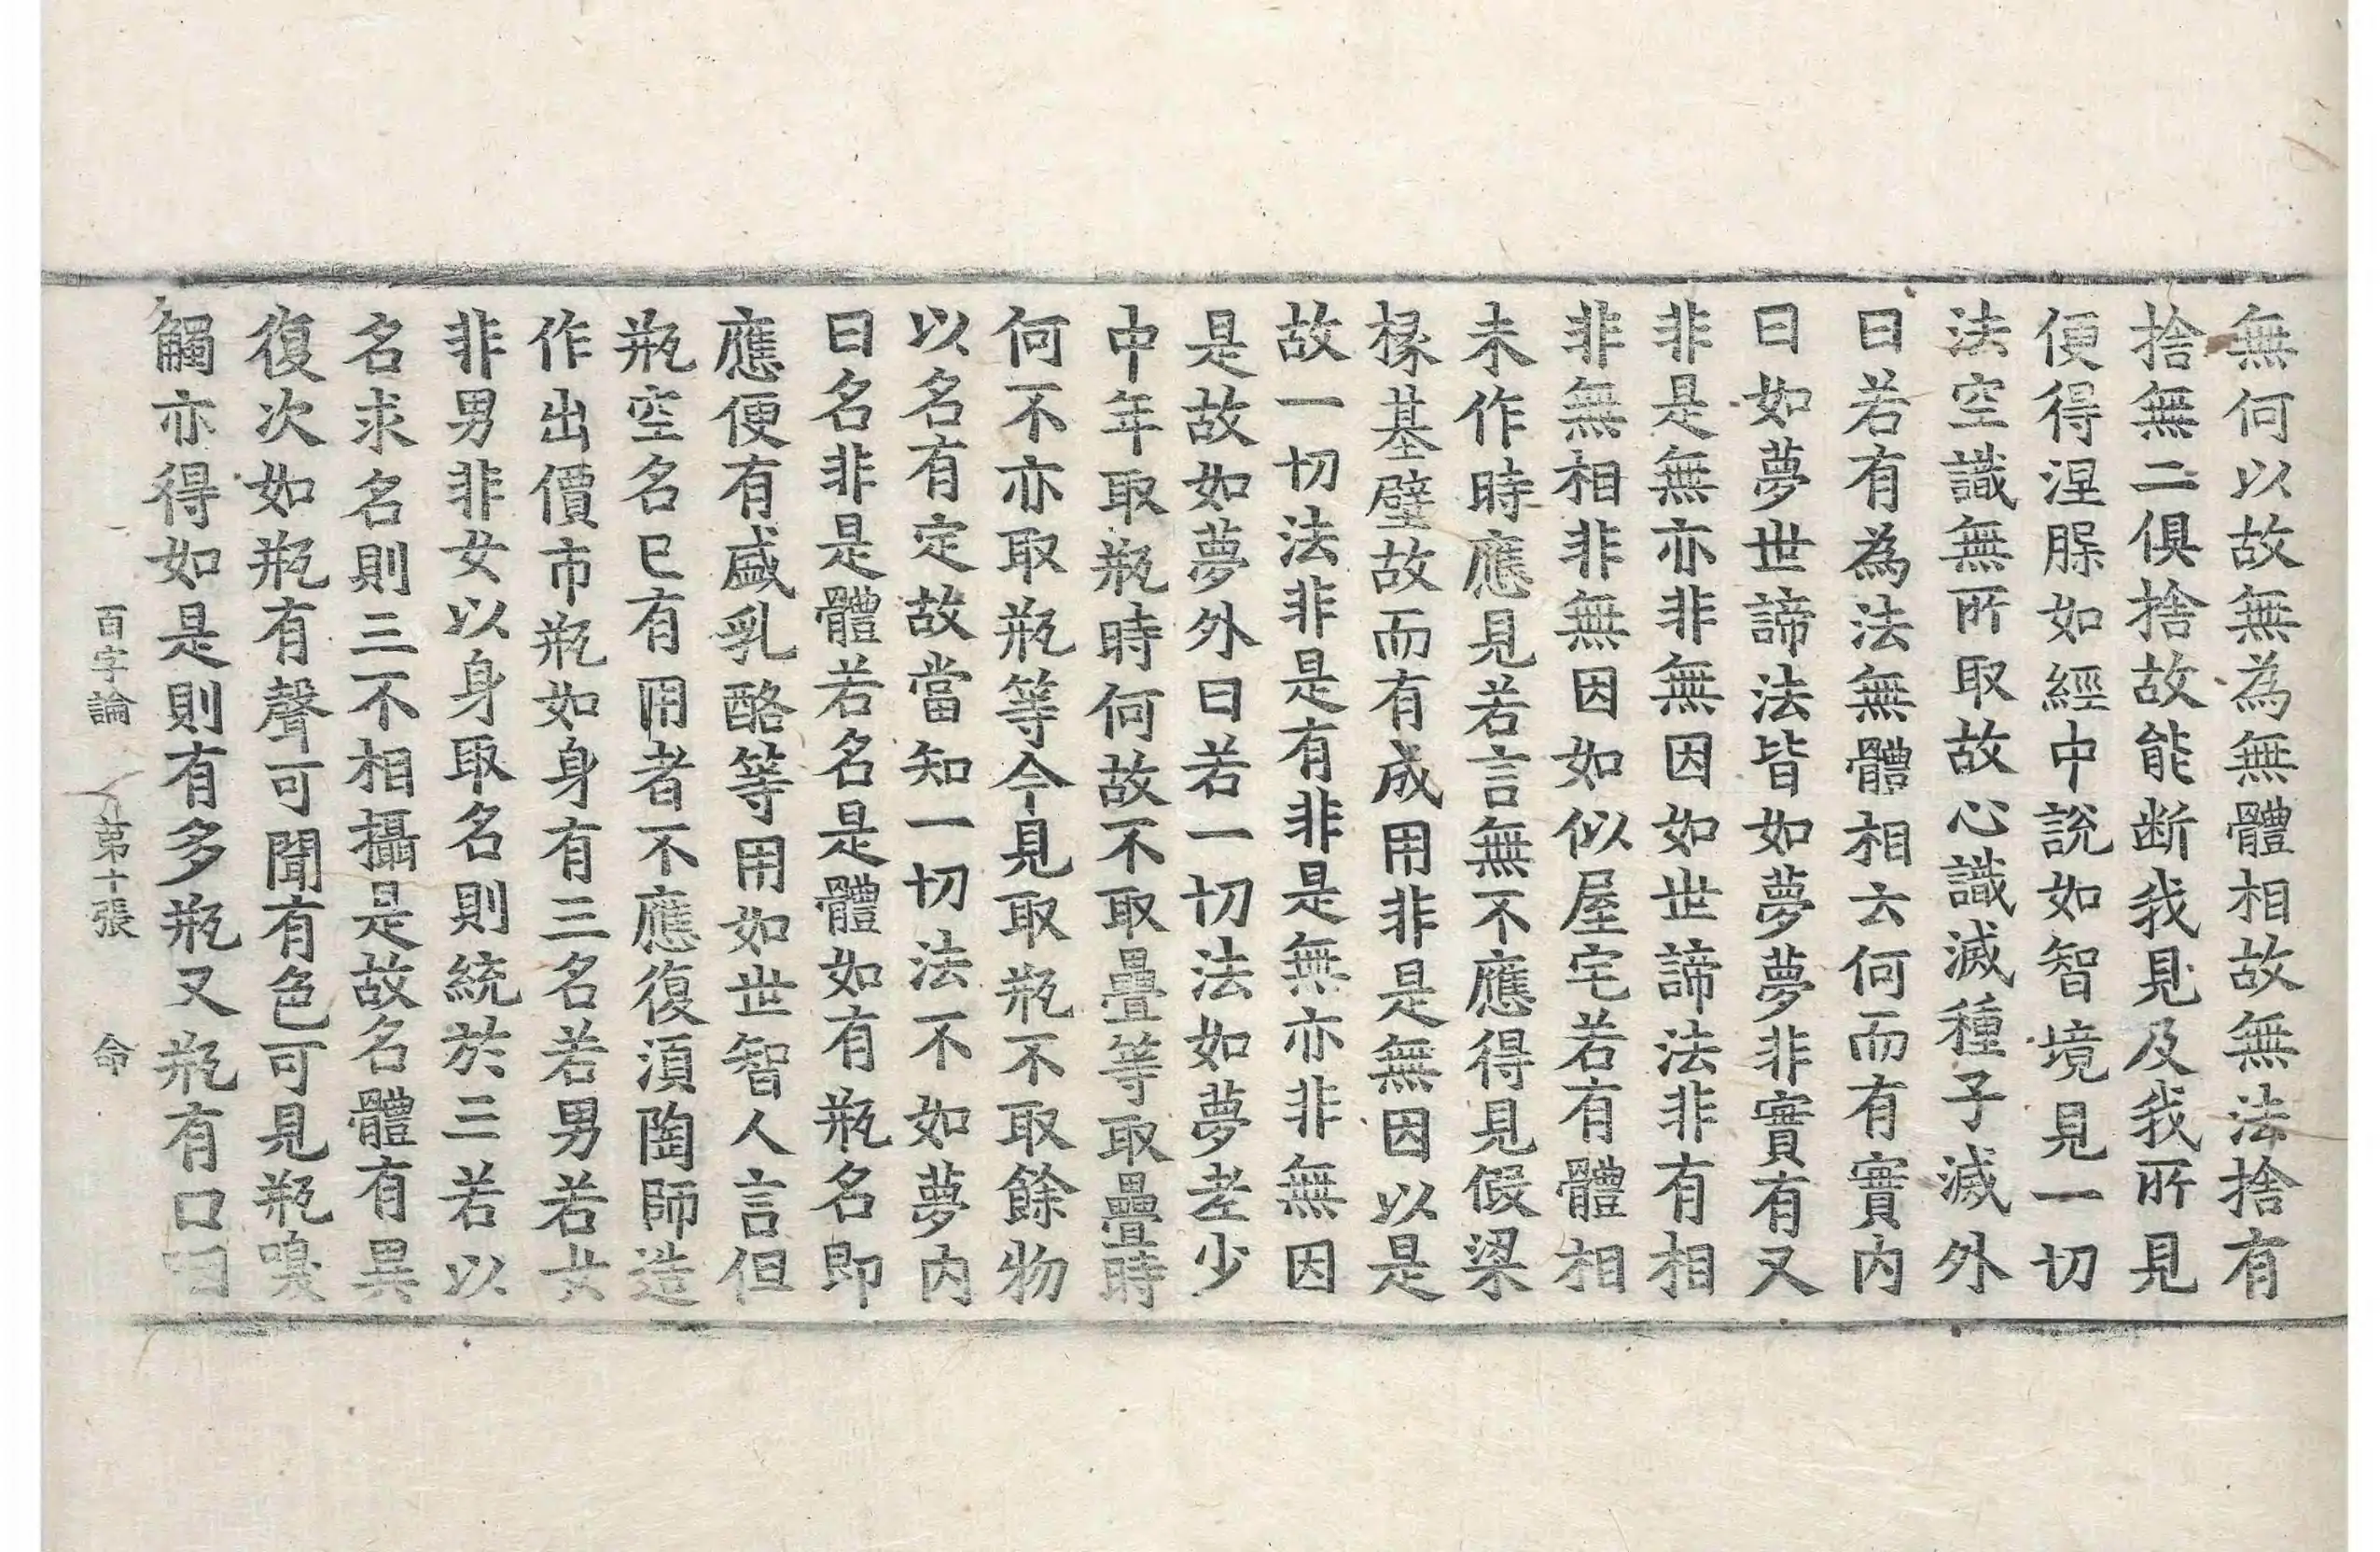 無何以故無為無體相故無法捨有
捨無二俱捨故能断我見及我所見
便得涅脲如經中說如智境見一切
法空識無所取故心識滅種子滅外
曰若有為法無體相云何而有實内
曰如夢世諦法皆如夢夢非實有又
非是無亦非無因如世諦法非有相
非無相非無因如似屋宅若有體相
未作時應見若言無不應得見假梁
椽基壁故而有成用非是無因以是
故一切法非是有非是無亦非無因
是故如夢外曰若一切法如夢老少
中年取瓶時何故不取疊等取疊時
何不亦取瓶等今見取瓶不取餘物
以名有定故當知一切法不如夢内
曰名非是體若名是體如有瓶名即
應便有盛乳酪等用如世智人言但
瓶空名已有用者不應復湏陶師造
作出價市瓶如身有三名若男若女
非男非女以身取名則統於三若以
名求名則三不相攝是故名體有異
復次如瓶有聲可聞有色可見瓶嗅
觸亦得如是則有多瓶又瓶有口
百字論 第十張 命